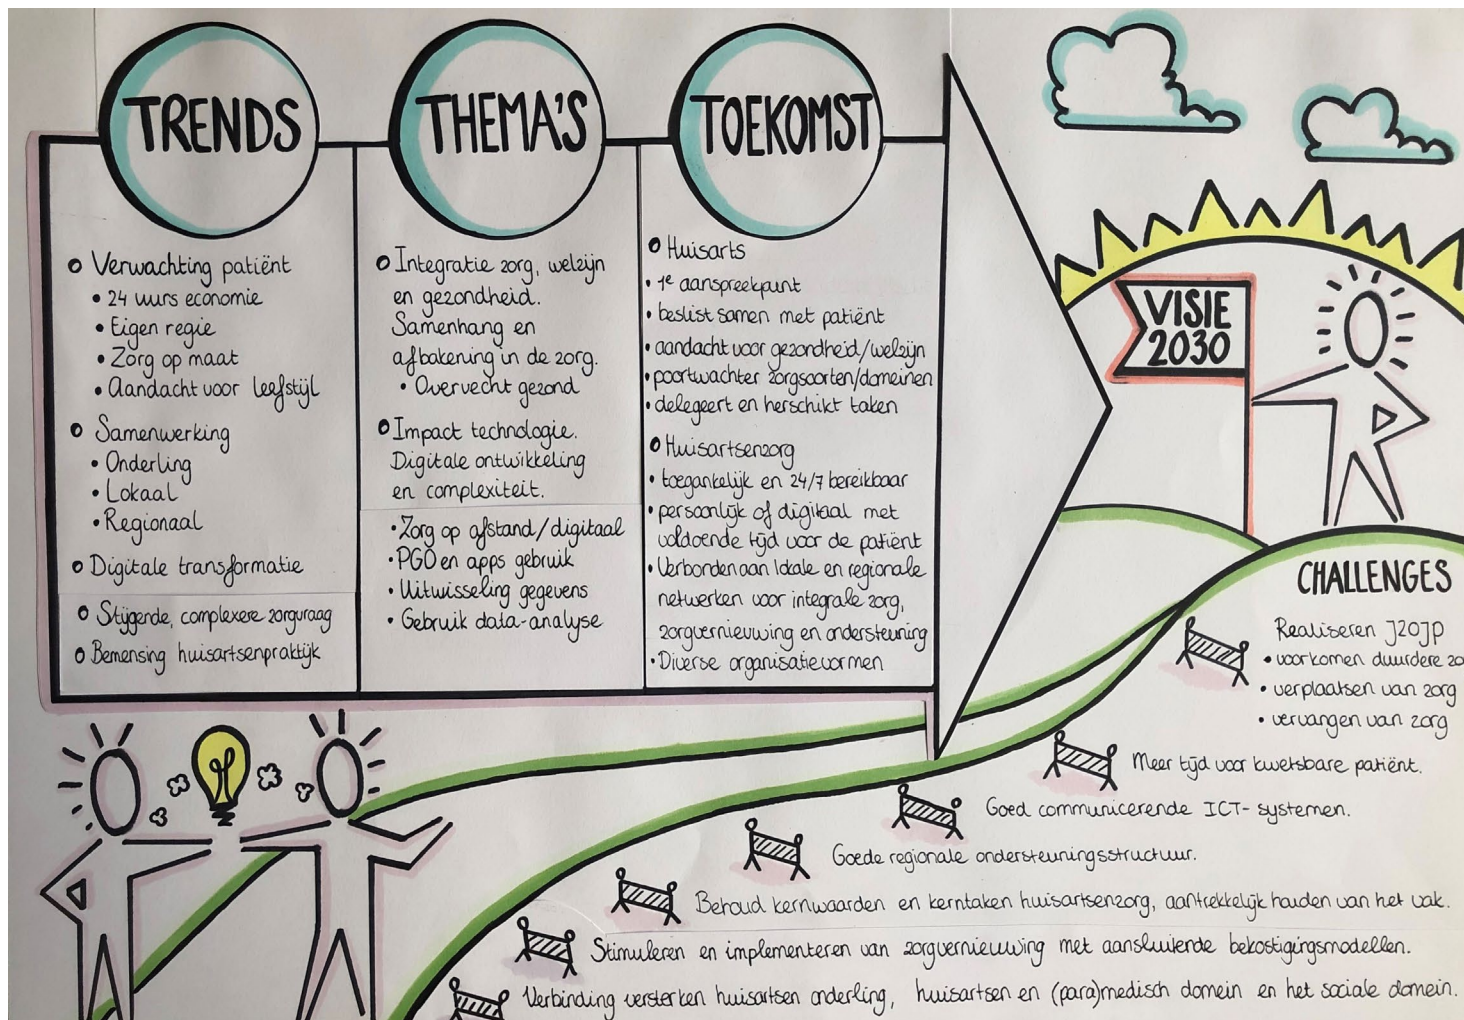 TRENDS
Verwachting patiënt
24 uurs economie
Eigen regie
Zorg op maat
Aandacht voor leefstijl
Samenwerking
Onderling
Lokaal
Regionaal
Digitale transformatie
Stijgende, complexere zorgvraag
Bemensing huisartsenpraktijk
THEMA'S
Integratie zorg, welzijn
en gezondheid.
Samenhang en
afbakening in de zorg.
Overvecht gezond
Impact technologie.
Digitale ontwikkeling
en complexiteit.
Zorg op afstand/digitaal
PGO en apps gebruik
Uitwisseling gegevens
Gebruik data-analyse
TOEKOMST
Huisarts
1e aanspreekpunt
beslist samen met patiënt
aandacht voor gezondheid/welzijn
poortwachter zorgsoorten/domeinen
delegeert en herschikt taken
Huisartsenzorg
toegankelijk en 24/7 bereikbaar
persoonlijk of digitaal met
voldoende tijd voor de patiënt
Verbonden aan lokale en regionale
netwerken voor integrale zorg,
zorgvernieuwing en ondersteuning
Diverse organisatievormen
VISIE
2030
CHALLENGES
Realiseren JZOJP
voorkomen duurdere zo
verplaatsen van zorg
vervangen van zorg
Meer tijd voor kwetsbare patiënt.
Goed communicerende ICT-systemen.
Goede regionale ondersteuningsstructuur.
Behoud kernwaarden en kerntaken huisartsenzorg, aantrekkelijk houden van het vak.
Stimuleren en implementeren van zorgvernieuwing met aansluitende bekostigingsmodellen.
Verbinding versterken huisartsen onderling, huisartsen en (para)medisch domein en het sociale domein.